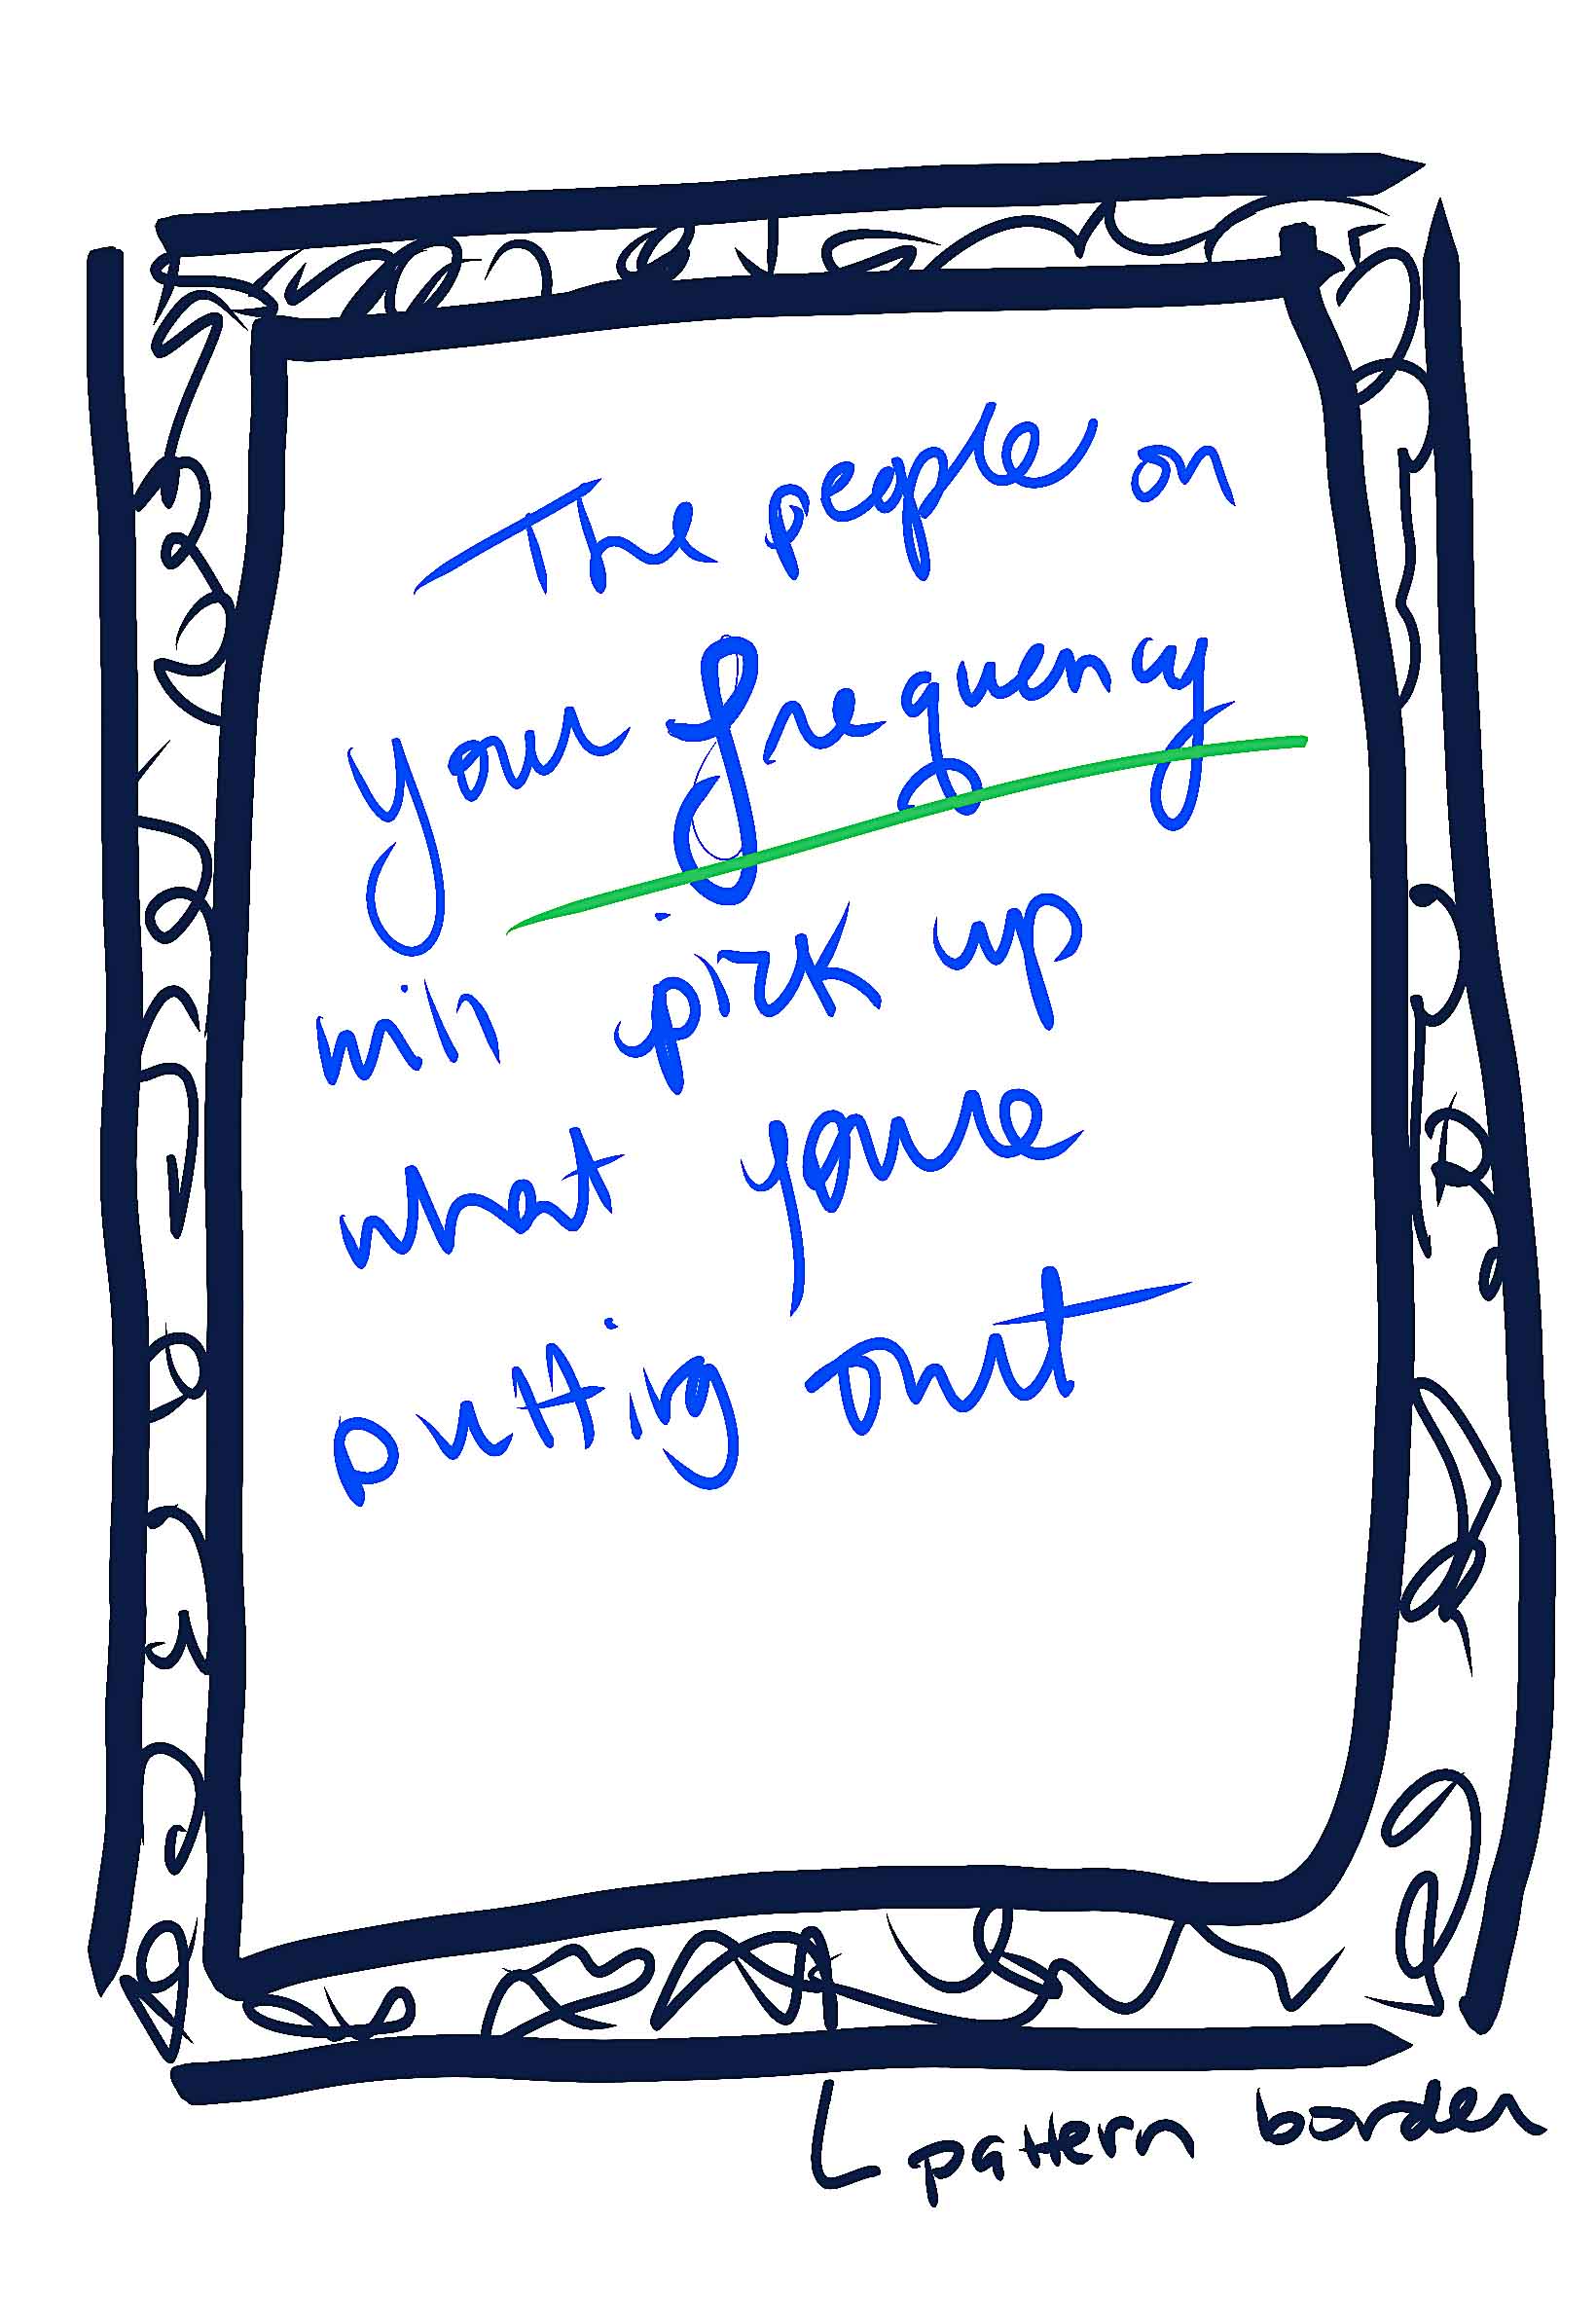 The people on
your frequency
will pick up
what youre
putting out
pattern border